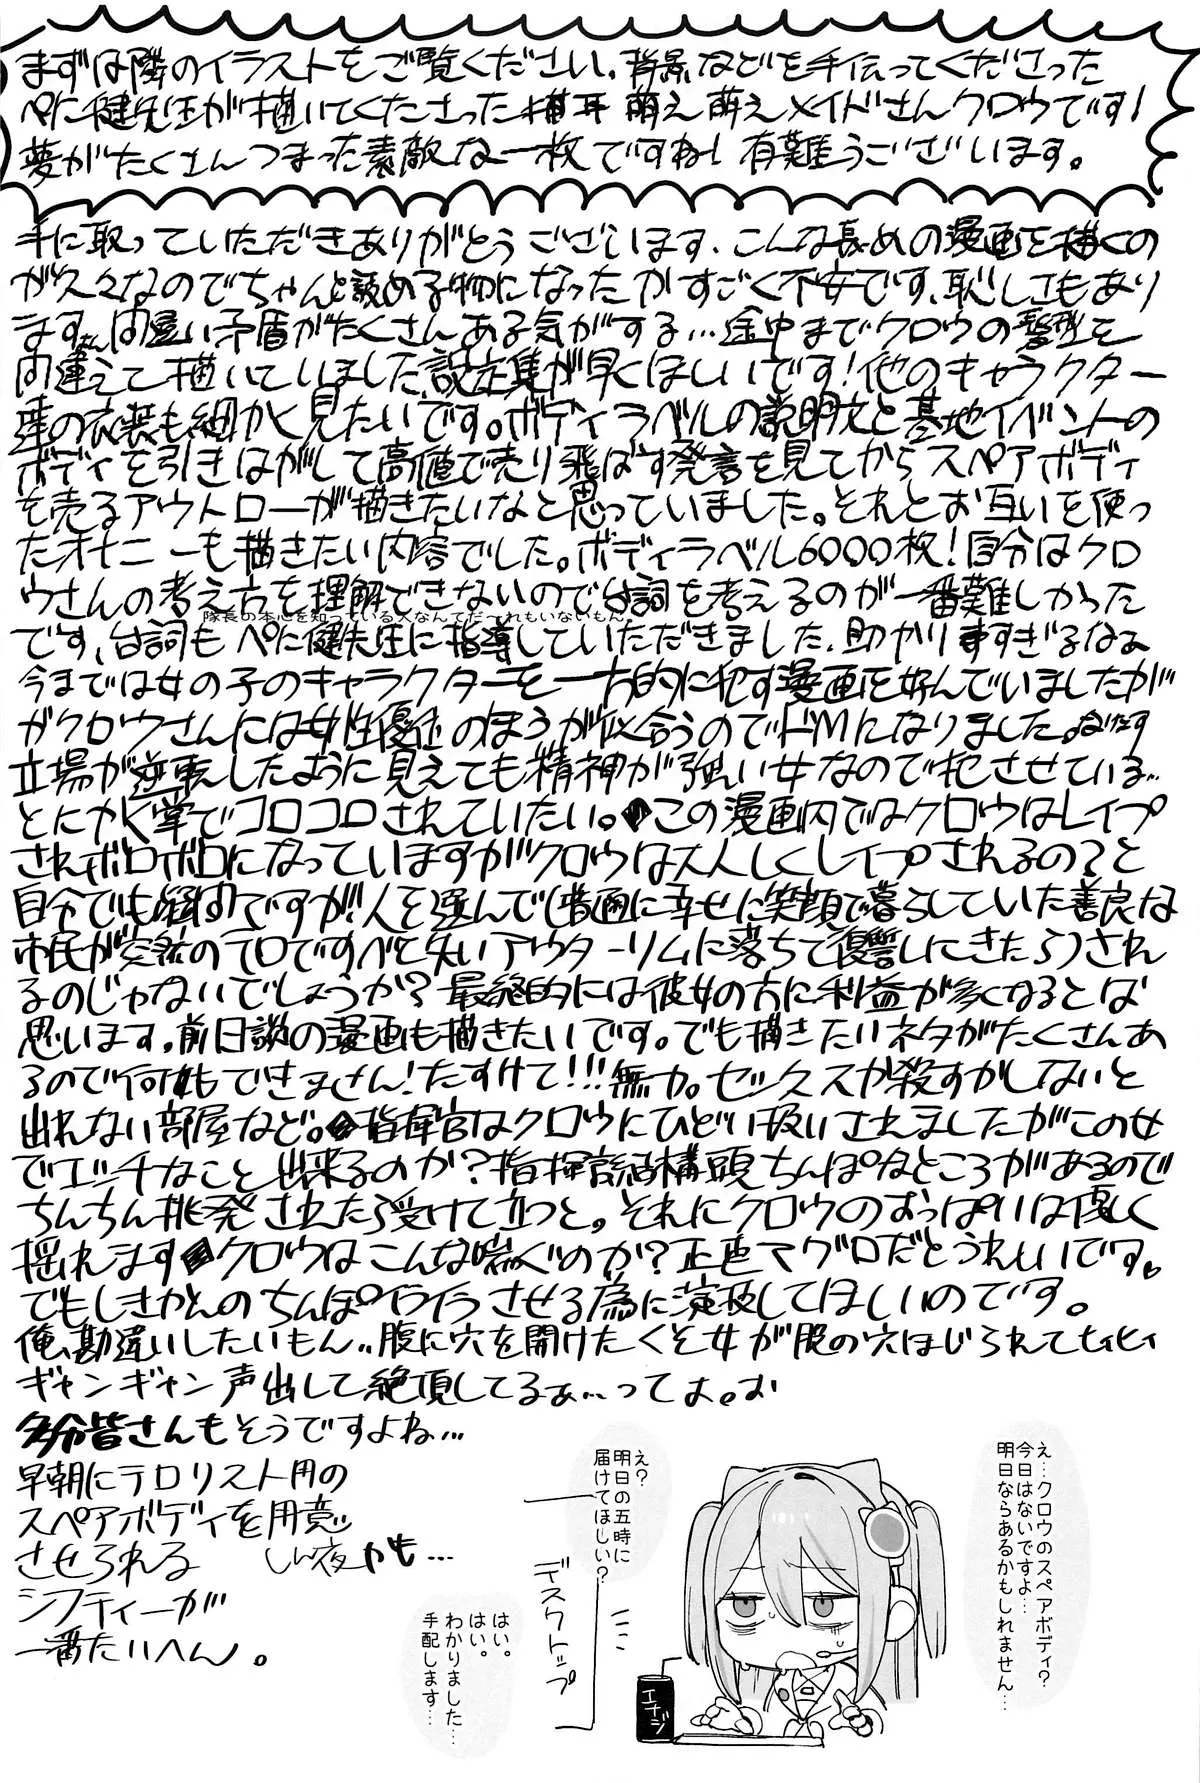 まずは隣のイラストをご覧ください。背景などを手伝ってくださった
ぺに健先生が描いてくださった猫耳萌え萌えメイドさんクロウです!
夢がたくさんつまった素敵な一枚ですね!有難うございます。
手に取っていただきありがとうございます、こんな長めの漫画を描くの
が久々なのでちゃんと読める物になったかすごく不安です、恥しさもあり
ます。間違い矛盾がたくさんある気がする…途中までクロウの髪型を
間違えて描いていました設定集が早くほしいです!他のキャラクター
達の衣装も細かく見たいです。ボディラベルの説明文と基地イベントの
ボディを引きはがして高値で売り飛ばす発言を見てからスペアボディ
を売るアウトローが描きたいなと思っていました。それとお互いを使っ
たオナニーも描きたい内容でした。ボディラベル6000枚!自分はクロ
ウさんの考え方を理解できないので台詞を考えるのが一番難しかった
隊長の本心を知っている人なんてだ〜れもいないもん。
です、台詞もぺに健先生に指導していただきました、助かりますすぎるなぁ
今までは女の子のキャラクターを一方的に犯す漫画を好んでいましたが
がクロウさんには女性優位のほうが似合うのでドMになりました。
立場が逆転したように見えても精神が強い女なので犯させている…
とにかく掌でコロコロされていたい。この漫画内ではクロウはレイプ
されボロボロになっていますがクロウは大人しくレイプされるの?と
自分でも疑問ですが!人を選んで(普通に幸せに笑顔で暮らしていた善良な
市民が突然のテロですべて失いアウターリムに落ちて復讐しにきたら)され
るのじゃないでしょうか?最終的には彼女の方に利益が多くなるとは
思います。前日談の漫画も描きたいです。でも描きたいネタがたくさんあ
るので何もできません!たすけて!!!無力。セックスか殺すかしないと
出れない部屋など。指揮官はクロウにひどい扱いされましたがこの女
でエッチなこと出来るのか?指揮官結構頭ちんぽなところがあるので
ちんちん挑発されたら受けて立つと。それにクロウのおっぱいは優しく
揺れます クロウはこんな喘ぐのか?正直マグロだとうれしいです。
でもしきかんのちんぽイライラさせる為に演技してほしいのです。
俺、勘違いしたいもん…腹に穴を開けたくそ女が股の穴ほじられてヒィヒィ
ギャンギャン声出して絶頂してるぁ…ってょ。お
多分皆さんもそうですよね…
早朝にテロリスト用の
スペアボディを用意
させられる しん夜かも…
シフティーが
一番たいへん。
え…クロウのスペアボディ?
今日はないですよ…
明日ならあるかもしれません…
え?
明日の五時に
届けてほしい?
デスクトップ
はい。
はい。
わかりました…
手配します…
エナジ